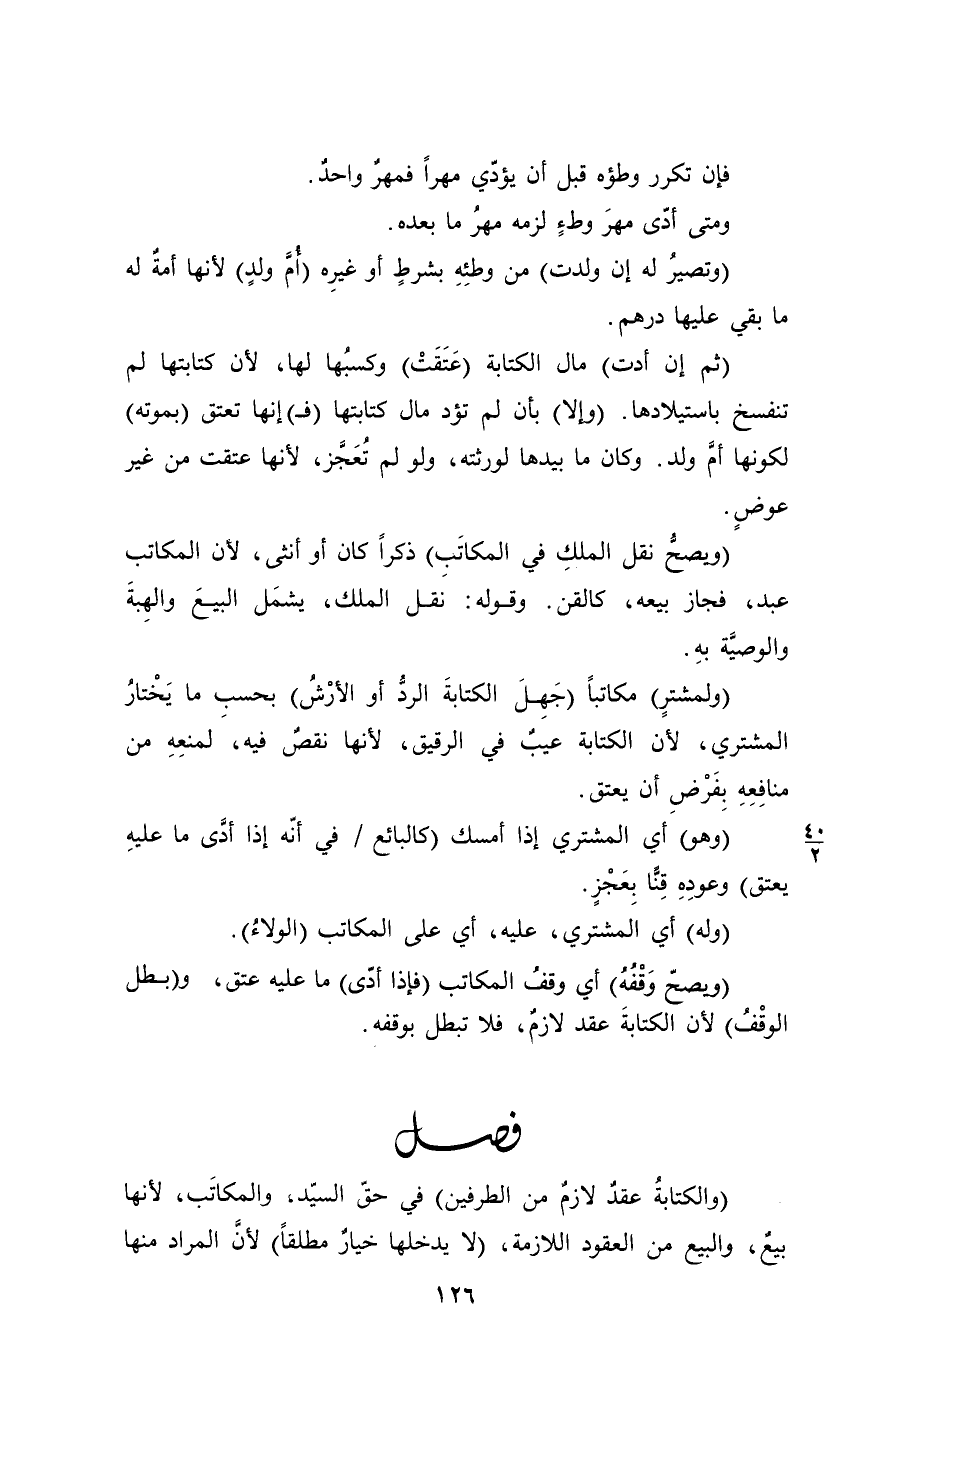 فإن تكرر وطؤه قبل أن يؤدّي مهراً فمهرٌ واحدٌ.
ومتى أدّى مهرَ وطءٍ لزمه مهرُ ما بعده.
(وتصيرُ له إن ولدت) من وطئِهِ بشرطٍ أو غيرِه (أُمَّ ولدٍ) لأنها أمةٌ له
ما بقي عليها درهم.
(ثم إن أدت) مال الكتابة (عَتَقَتْ) وكسبُها لها، لأن كتابتها لم
تنفسخ باستيلادها. (وإلا) بأن لم تؤد مال كتابتها (فـ)إنها تعتق (بموته)
لكونها أمَّ ولد. وكان ما بيدها لورثته، ولو لم تُعَجَّز، لأنها عتقت من غير
عوضٍ.
(ويصحُّ نقل الملكِ في المكاتَبِ) ذكراً كان أو أنثى، لأن المكاتب
عبد، فجاز بيعه، كالقن. وقوله: نقل الملك، يشمَل البيعَ والهِبةَ
والوصيَّة بهِ.
(ولمشترٍ) مكاتباً (جَهِلَ الكتابةَ الردُّ أو الأرْشُ) بحسبِ ما يَخْتارُ
المشتري، لأن الكتابة عيبٌ في الرقيق، لأنها نقصٌ فيه، لمنعِهِ من
منافِعِهِ بِفَرْضِ أن يعتق.
(وهو) أي المشتري إذا أمسك (كالبائع / في أنّه إذا أدَّى ما عليهِ
٤٠
٢
يعتق) وعودِهِ قِنًّا بِعَجْزٍ.
(وله) أي المشتري، عليه، أي على المكاتب (الولاءُ).
(ويصحّ وَقْفُهُ) أي وقفُ المكاتب (فإذا أدّى) ما عليه عتق، و(بطل
الوقْفُ) لأن الكتابةَ عقد لازمٌ، فلا تبطل بوقفه.
فصل
(والكتابةُ عقدٌ لازمٌ من الطرفين) في حقّ السيّد، والمكاتَب، لأنها
بيعٌ، والبيع من العقود اللازمة، (لا يدخلها خيارٌ مطلقاً) لأنَّ المراد منها
١٢٦